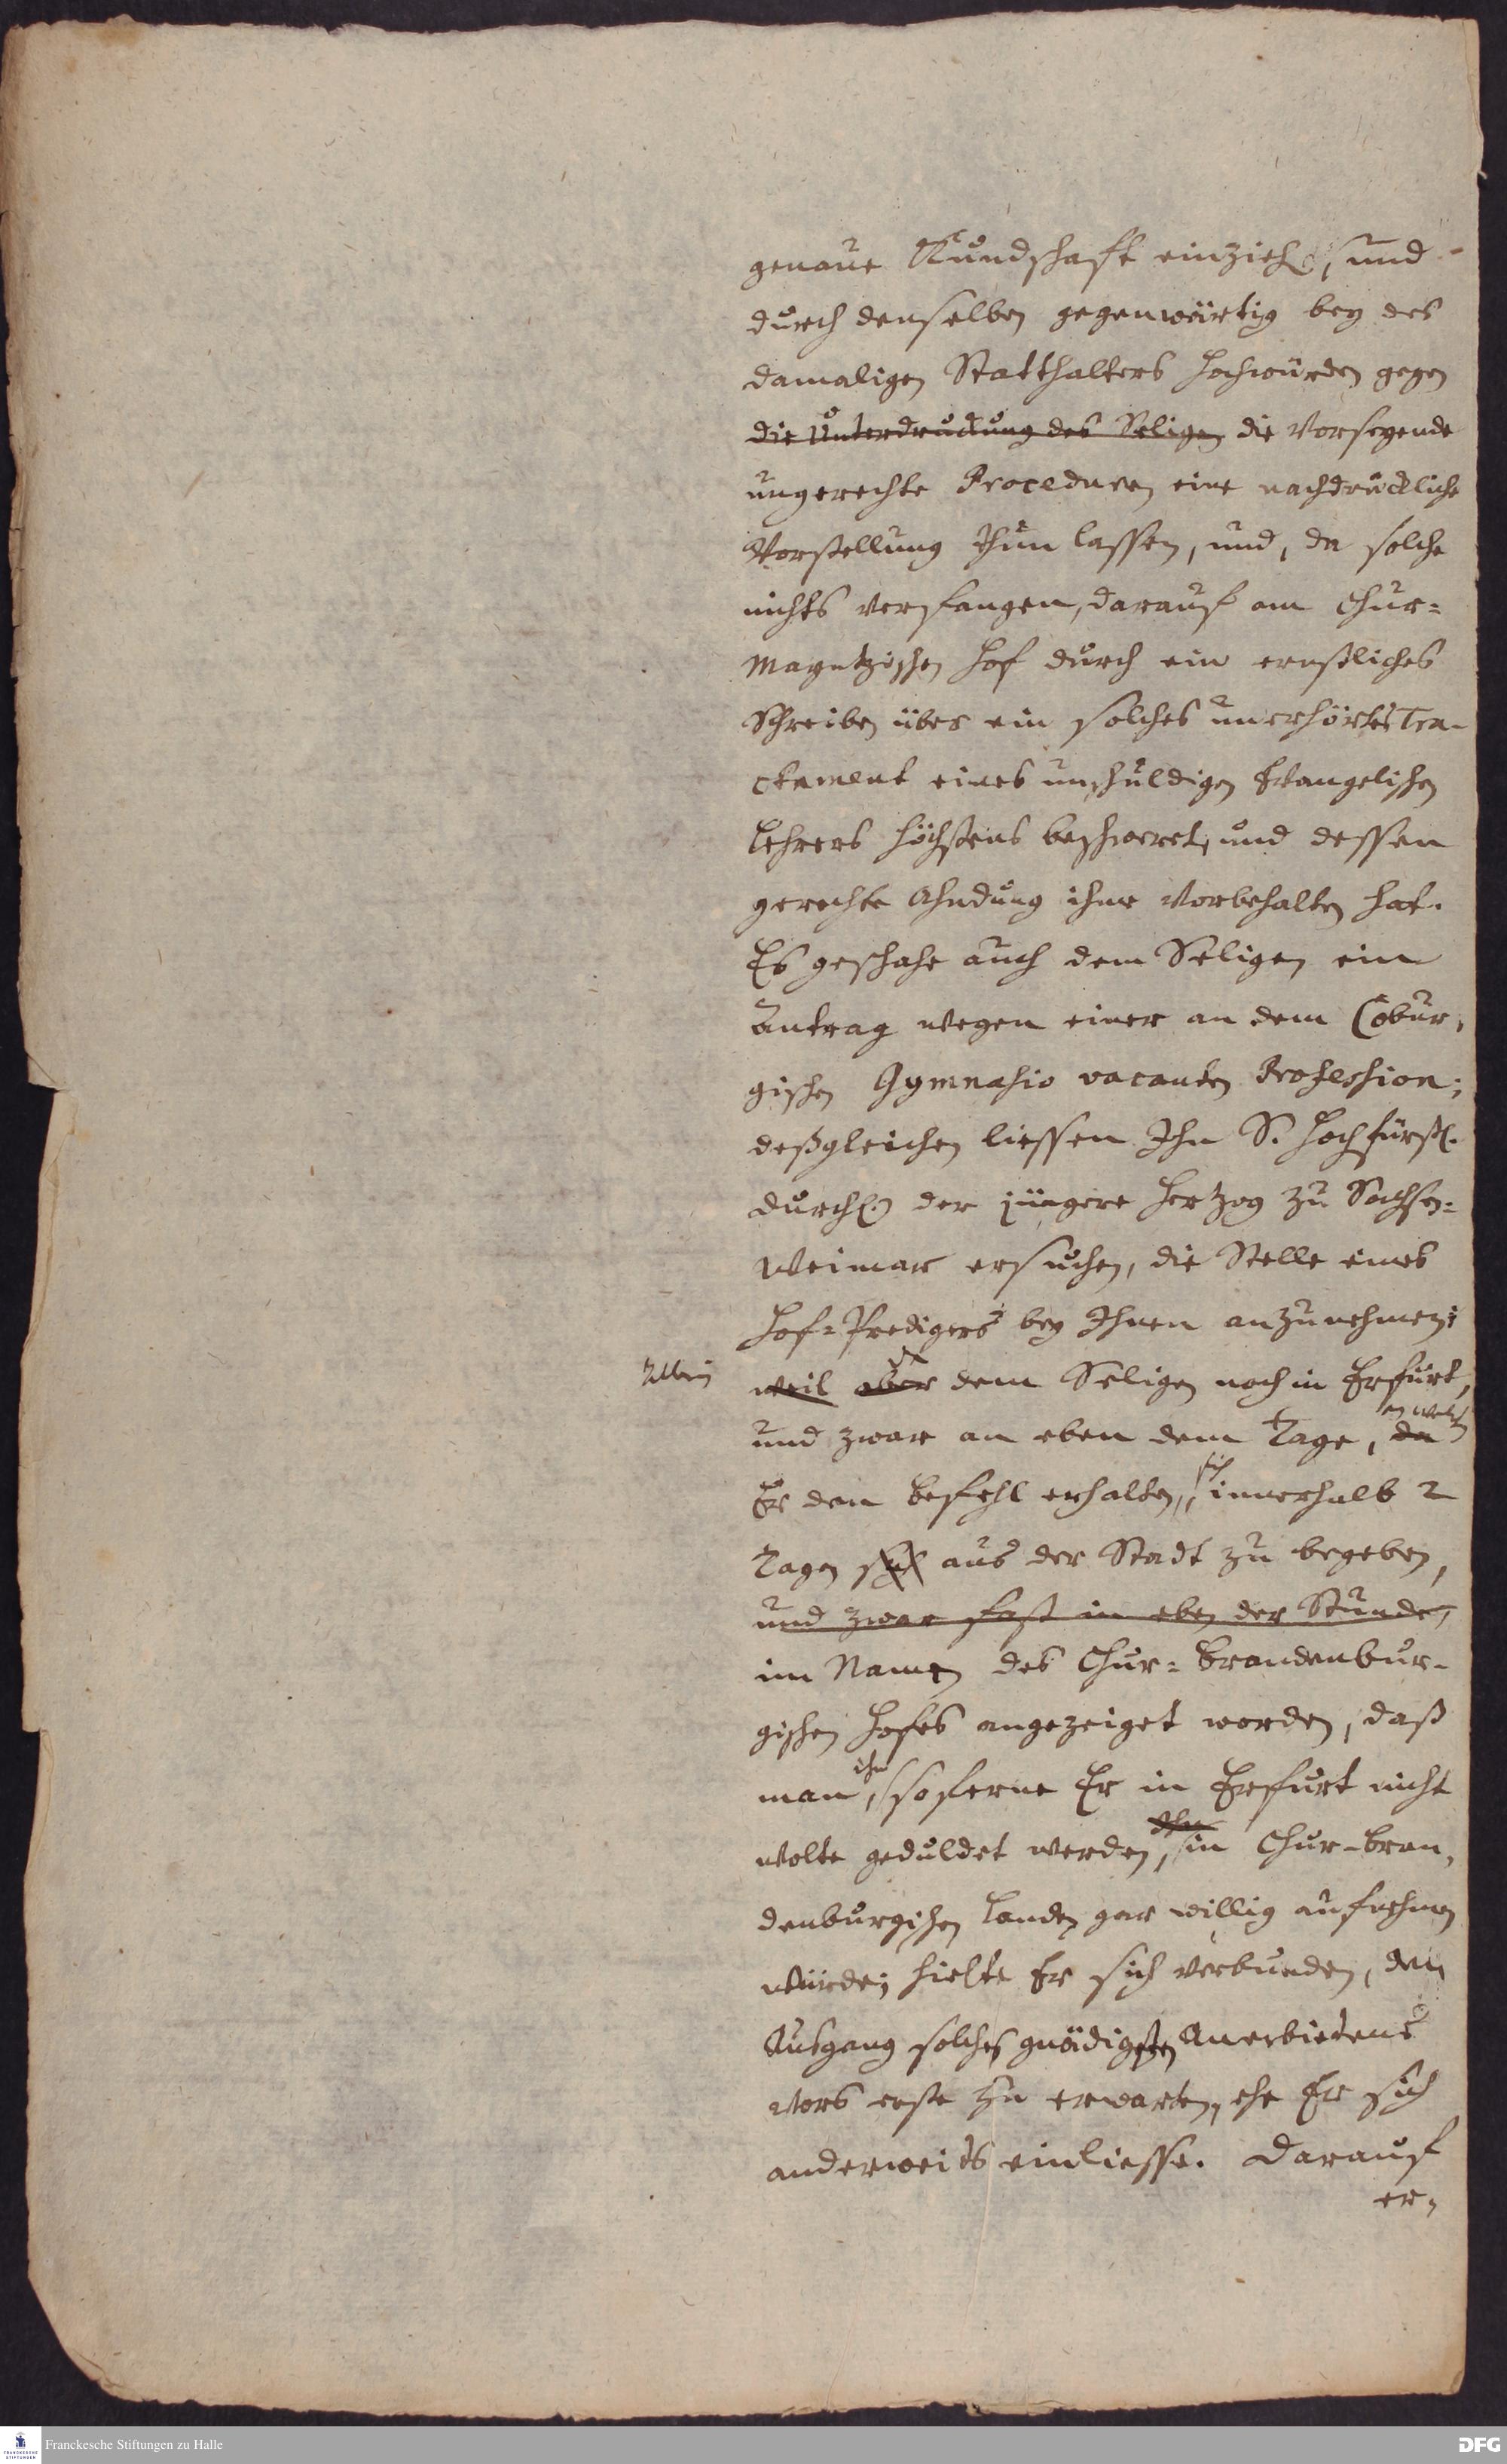 genaue Kundschafft einziehen, und
durch denselben gegenwärtig bey des
damaligen Statthalters Hochwürden gegen
die Unterdruckung des Seligen die Vorseyende
ungerechte Proceduren eine nachdrückliche
Vorstellung thun lassen, und, da solche
nichts verfangen, darauf am Chur=
Mayntzischen Hof durch ein ernstliches
Schreiben über ein solches unerhörtes Tra-
ctament eines unschuldigen Evangelischen
Lehrers höchstens beschweret, und dessen
gerechte Ahndung ihme Vorbehalten hat.
Es geschahe auch dem Seligen ein
Antrag wegen einer an dem Cobur,
gischen Gymnasio vacanten Profession;
deßgleichen liessen Ihn S. Hochfürstl.
Durchl. der jüngere Hertzog zu Sachsen=
Weimar ersuchen, die Stelle eines
Hof=Predigers bey Ihnen anzunehmen:
Allein weil aber da dem Seligen noch in Erfurt,
und zwar an eben dem Tage, da an welchem
Er den Befehl erhalten, sich innerhalb 2
Tagen sich aus der Stadt zu begeben,
und zwar fast in eben der Stunde,
im Namen des Chur=Brandenbur-
gischen Hofes angezeiget worden, daß
man ihn, soferne Er in Erfurt nicht
wolte geduldet werden, Ihn in Chur-Bran,
denburgischen Landen gar willig aufnehmen
würde; hielte Er sich verbunden, den
Ausgang solches gnädigsten Anerbietens
vors erste zu erwarten, ehe Er sich
anderweits einliesse. Darauf
er,
Franckesche Stiftungen zu Halle
DFG